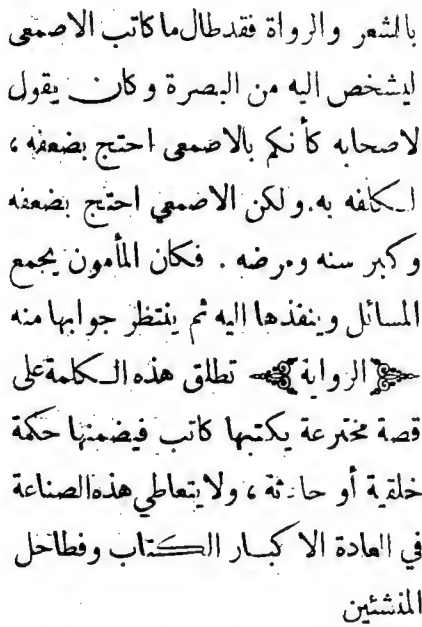 بالشعر والرواة فقد طال ما كاتب الاصمعى
ليشخص اليه من البصرة وكان يقول
لاصحابه كأنكم بالاصمعى احتج بضعفه ،
لكلفه به. ولكن الاصمعي احتج بضعفه
وكبر سنه ومرضه . فكان المأمون يجمع
المسائل وينفذها اليه ثم ينتظر جوابها منه
﴿الرواية﴾ تطلق هذه الكلمة على
قصة مخترعة يكتبها كاتب فيضمنها حكمة
خلقية أو حادثة ، ولا يتعاطي هذه الصناعة
في العادة الا كبار الكتاب وفطاحل
المنشئين